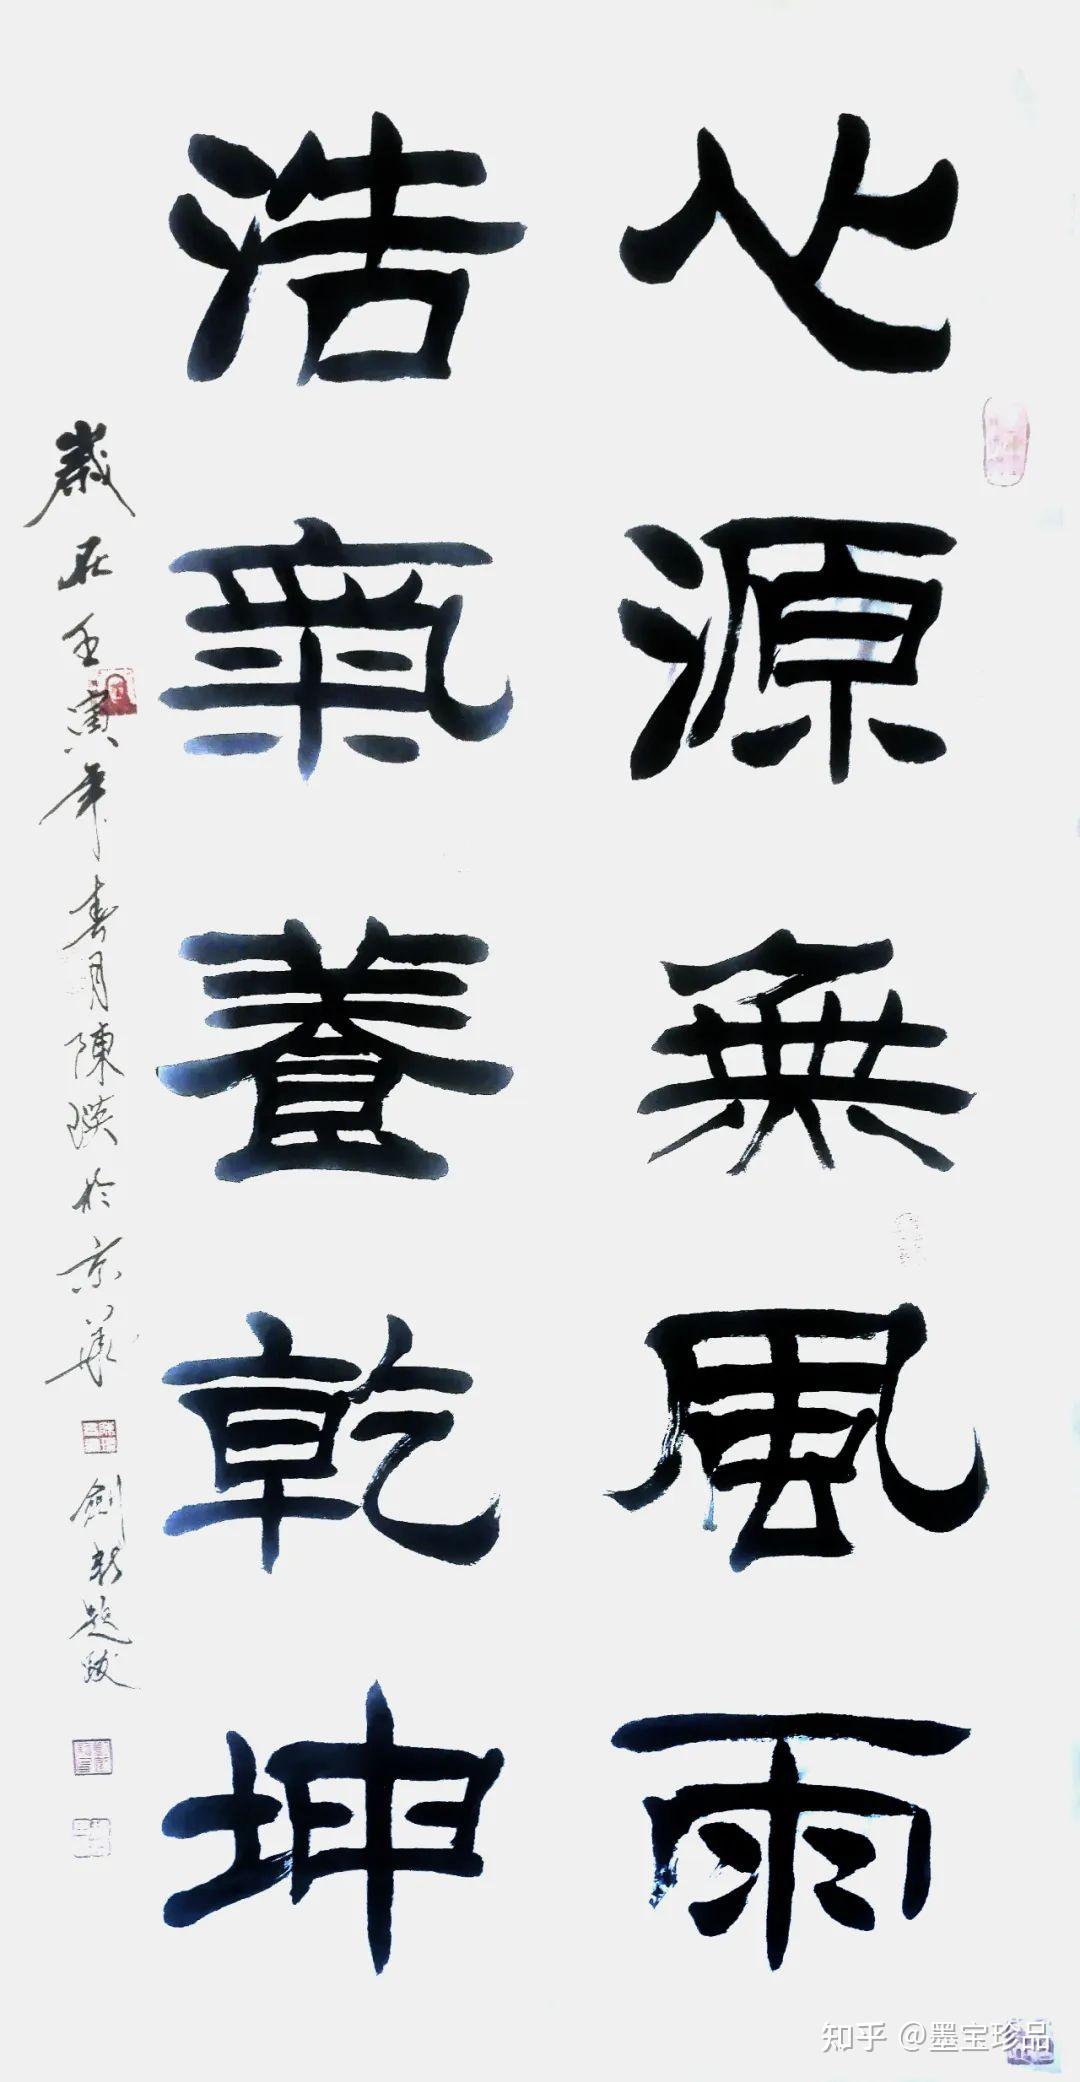 心源無風雨
浩氣養乾坤
歲在壬寅年春月陳瑛於京華
劍新題跋
知乎 @墨宝珍品